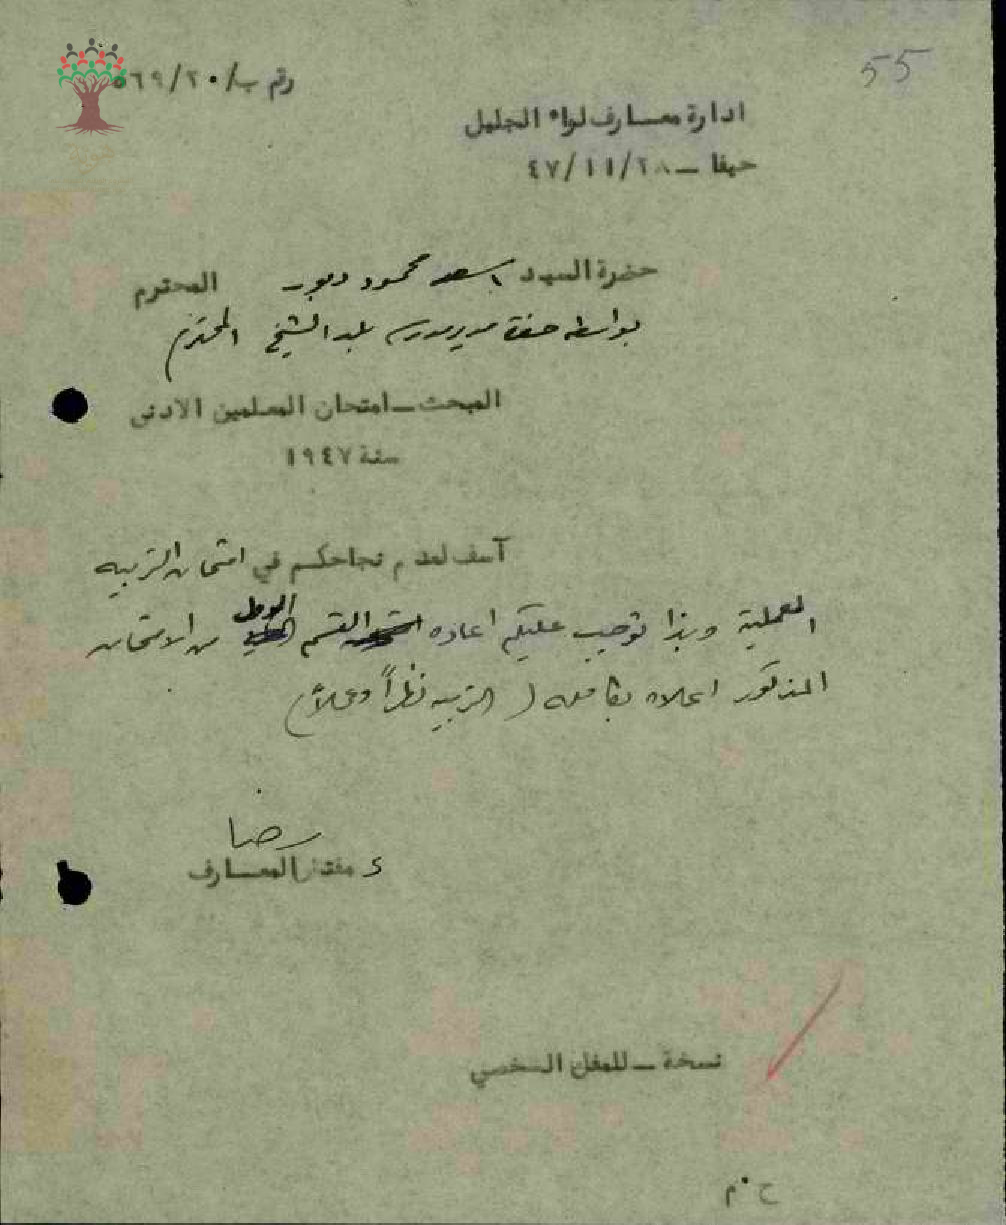 55
رقم ب/٥٦٩/٢٠
ادارة معارف لواء الجليل
حيفا – ٤٧/١١/٢٨
حضرة السيد اسعد محمود المحترم
بواسطة حضرة مدير مدرسة بلد الشيخ المحترم
المبحث – امتحان المعلمين الادنى
سنة ١٩٤٧
آسف لعدم نجاحكم في امتحان التربيه
العملية وبذا توجب عليكم اعاده القسم الاول من الامتحان
المذكور اعلاه بكامله ( التربيه نظراً وعملاً )
رضا
ع مفتش المعارف
نسخة – للملف الشخصي
ح٠م